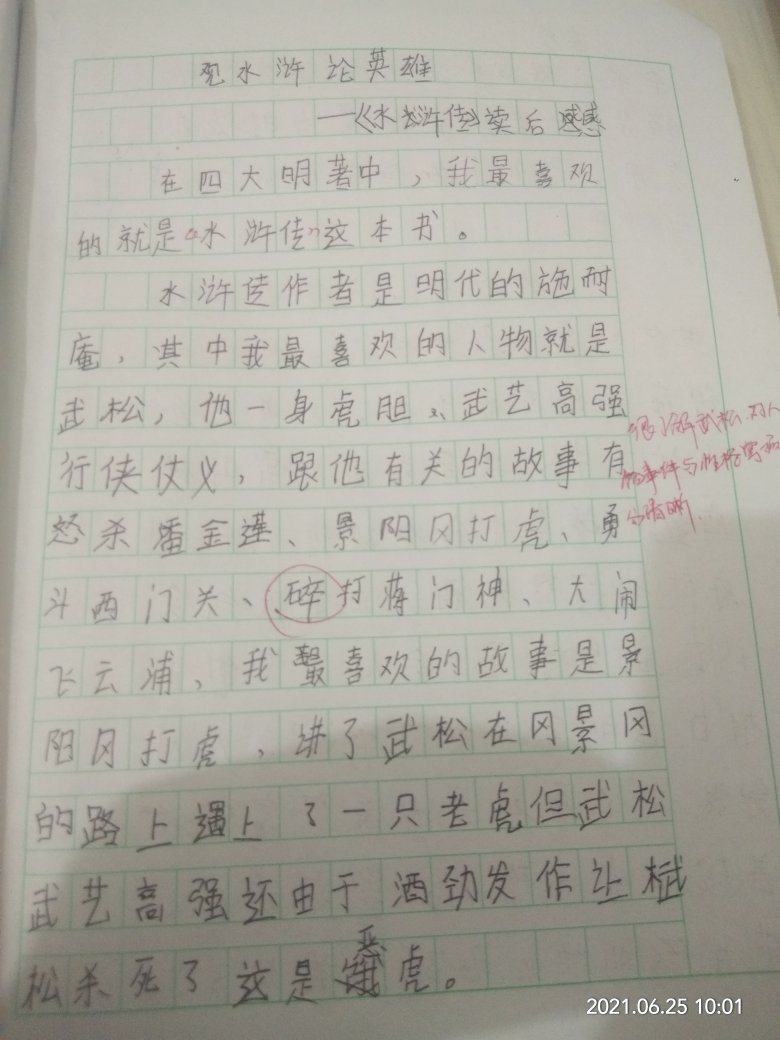 观水浒论英雄
——《水浒传》读后感
在四大明著中，我最喜欢
的就是“水浒传”这本书。
水浒传作者是明代的施耐
庵，其中我最喜欢的人物就是
武松，他一身虎胆、武艺高强
行侠仗义，跟他有关的故事有
怒杀潘金莲、景阳冈打虎、勇
斗西门关、碎打蒋门神、大闹
飞云浦，我最喜欢的故事是景
阳冈打虎，讲了武松在冈景冈
的路上遇上了一只老虎但武松
武艺高强还由于酒劲发作让武
松杀死了这是恶虎。
很了解武松，对人
物事件与性格写
分清晰．
2021.06.25 10:01